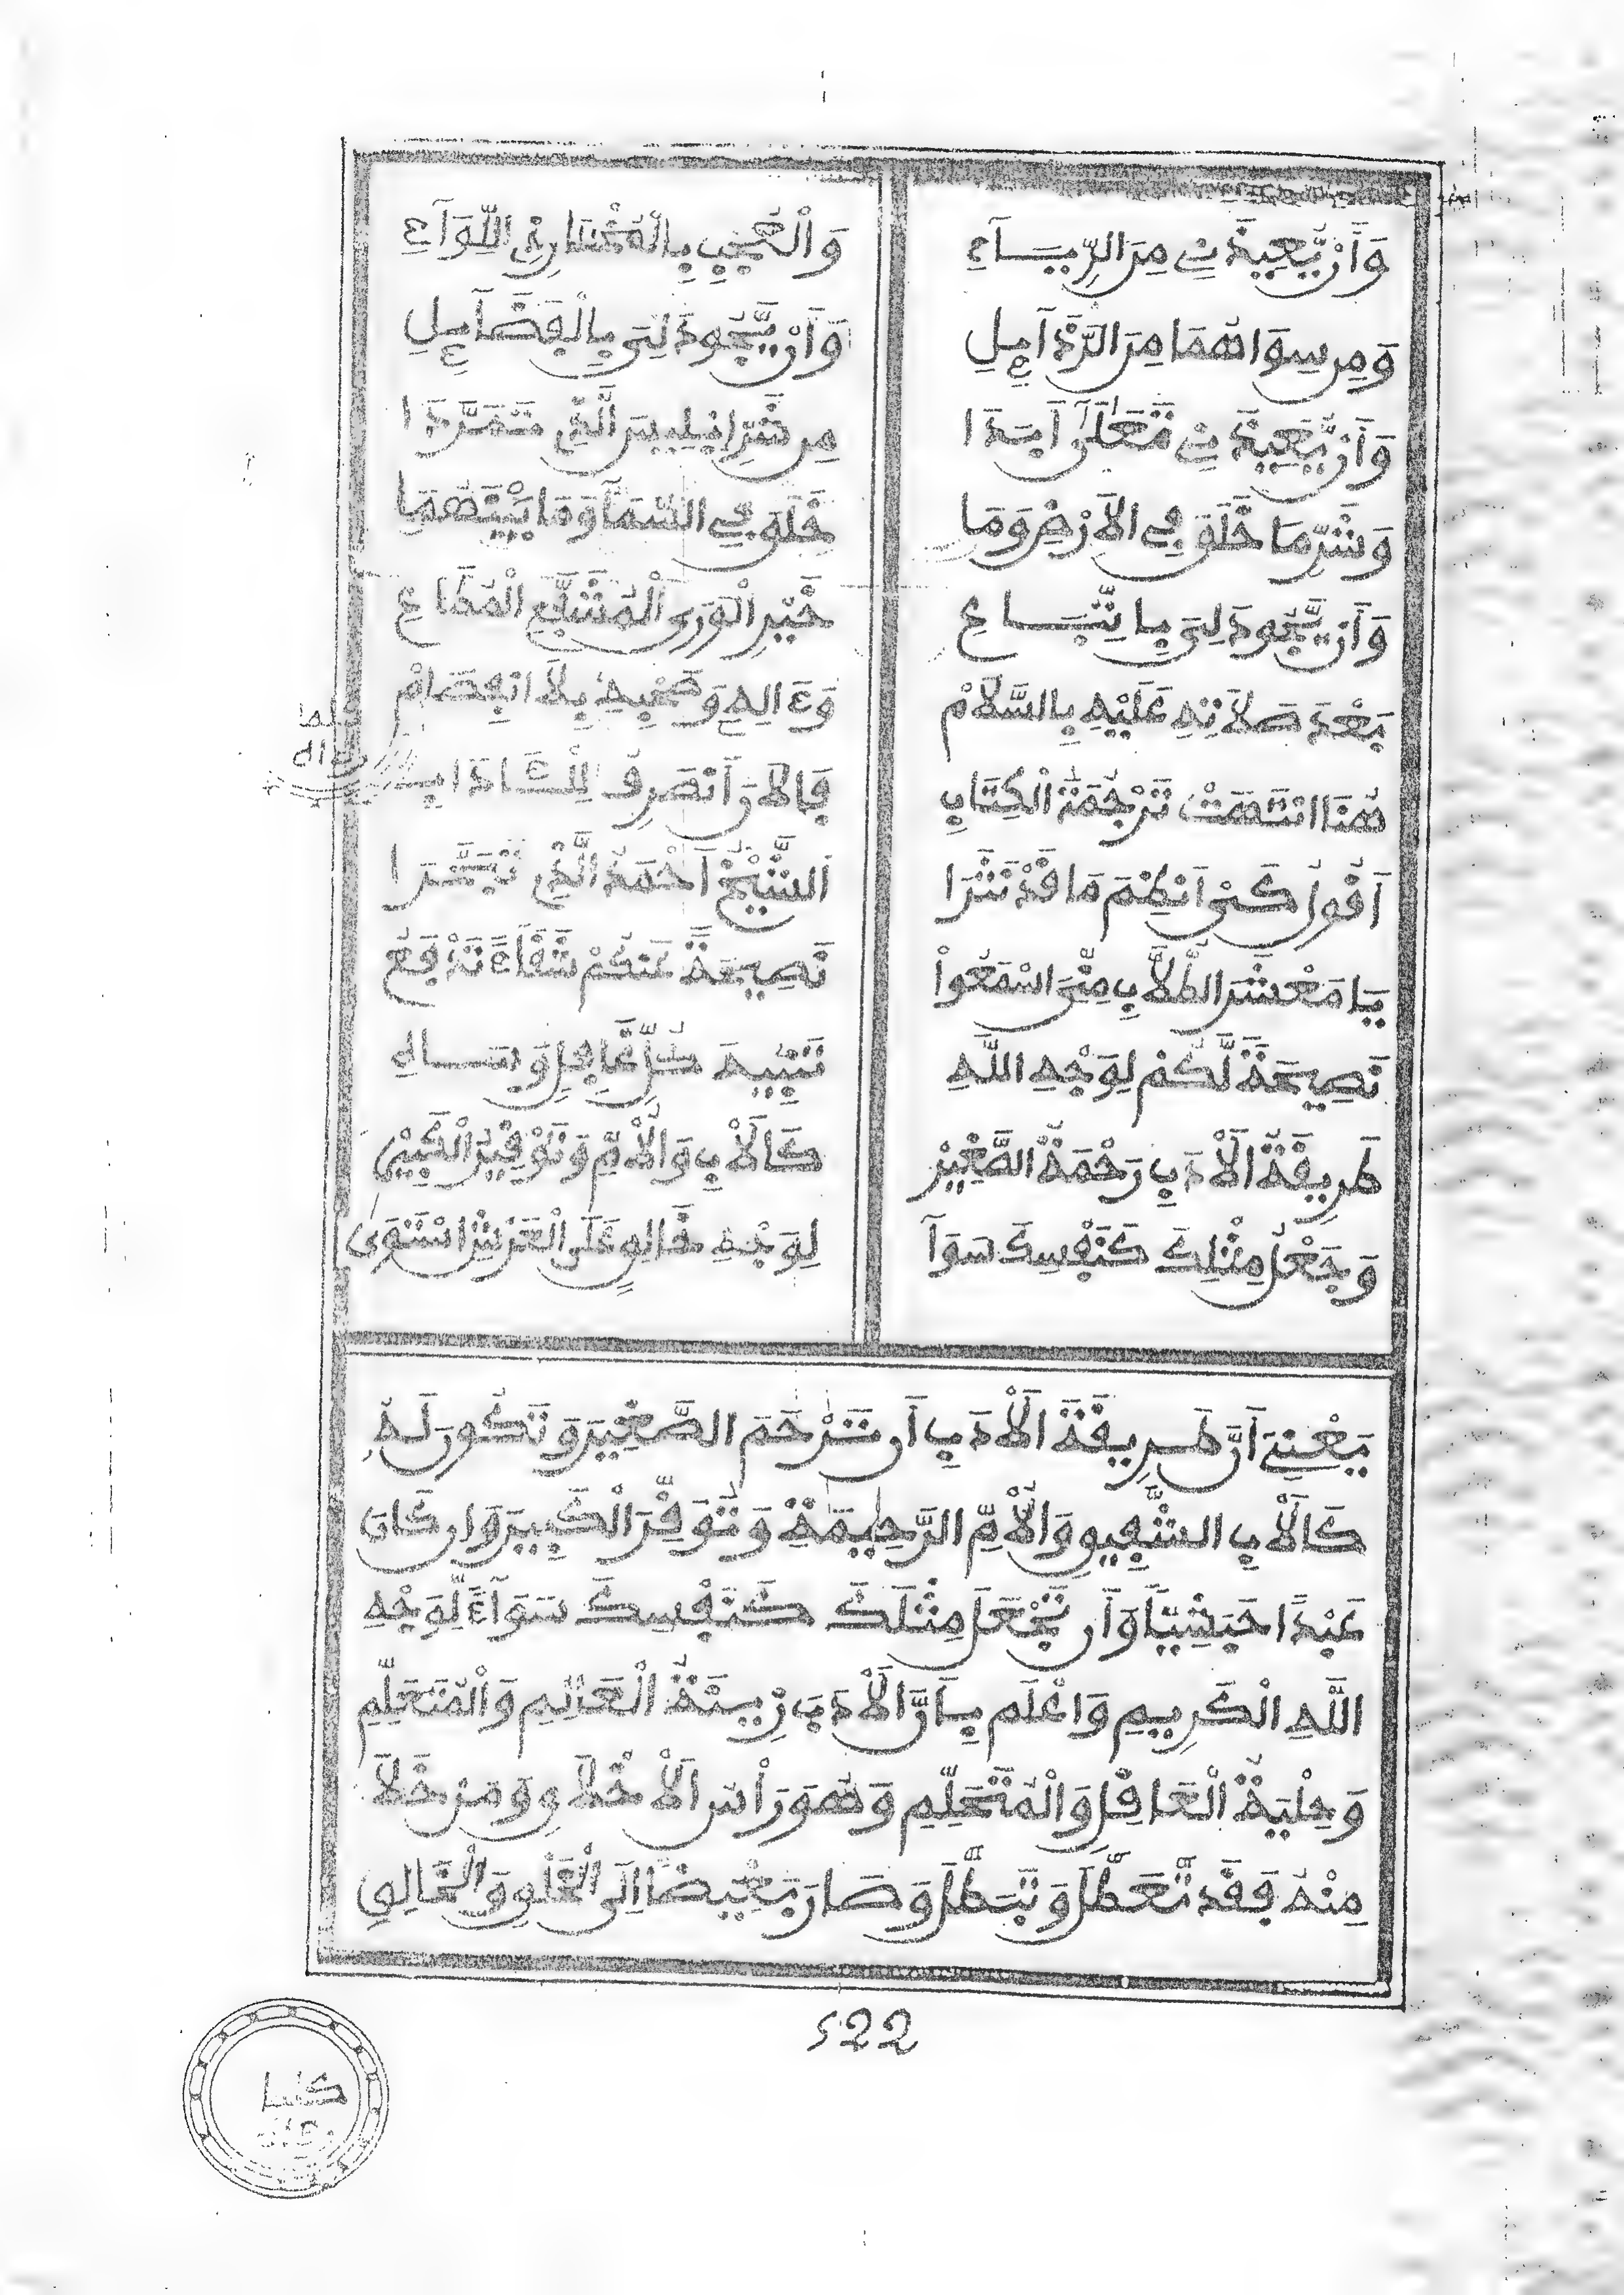 وَأَنْ يُّعِيذَنِي مِنَ الرِّيَاءِ وَالْعُجْبِ بِالْمُخْتَارِ ذِي اللِّوَاءِ
وَمِن سِوَاهُمَا مِنَ الرَّذَائِلِ وَأَنْ يَّجُودَ لِي بِالْفَضَائِلِ
وَأَنْ يُّعِيذَنِي تَعَالَى أَبَدَا مِن شَرِّ إِبْلِيسَ الَّذِي تَمَرَّدَا
وَشَرِّ مَا خَلَقَ فِي الْأَرْضِ وَمَا خَلَقَ فِي السَّمَا وَمَا بَيْنَهُمَا
وَأَنْ يَّجُودَ لِي بِاتِّبَاعِ خَيْرِ الْوَرَى الْمُشَفَّعِ الْمُطَاعِ
بَعْدَ صَلَاتِهِ عَلَيْهِ بِالسَّلَامْ وَءَالِهِ وَصَحْبِهِ بِلَا انْفِصَامْ
هُنَا انْتَهَتْ تَرْجُمَةُ الْكِتَابِ فَالْآنَ أَنْصَرِفُ لِلْآدَابِ
أَقُولُ كَيْ أَنْظِمَ مَا قَدْ نَثَرَا الشَّيْخُ أَحْمَدُ الَّذِي تَبَحَّرَا
يَا مَعْشَرَ الطُّلَّابِ مِنِّي اسْمَعُواْ نَصِيحَةً عَنكُمْ شَقَاءً تَدْفَعُ
نَصِيحَةً لَّكُمْ لِوَجْهِ اللَّهِ تَنْبِيهَ كُلِّ غَافِلٍ وَسَاهِ
طَرِيقَةُ الْأَدَبِ رَحْمَةُ الصَّغِيرْ كَالْأَبِ وَالْأُمِّ وَتَوْقِيرُ الْكَبِيرْ
وَجَعْلُ مِثْلِكَ كَنَفْسِكَ سَوَا لِوَجْهِ خَالِقٍ عَلَى الْعَرْشِ اسْتَوَى
يَعْنِي أَنَّ طَرِيقَةَ الْأَدَبِ أَن تَرْحَمَ الصَّغِيرَ وَتَكُونَ لَهُ
كَالْأَبِ الشَّفِيقِ وَالْأُمِّ الرَّحِيمَةِ وَتُوَقِّرَ الْكَبِيرَ وَإِن كَانَ
عَبْدًا حَبَشِيًّا وَأَن تَجْعَلَ مِثْلَكَ كَنَفْسِكَ سَوَاءً لِّوَجْهِ
اللَّهِ الْكَرِيمِ وَاعْلَم بِأَنَّ الْأَدَبَ زِينَةُ الْعَالِمِ وَالْمُتَعَلِّمِ
وَحِلْيَةُ الْعَاقِلِ وَالْمُتَحَلِّمِ وَهُوَ رَأْسُ الْأَخْلَاقِ وَمَنْ خَلَا
مِنْهُ فَقَد تَّعَطَّلَ وَتَبَطَّلَ وَصَارَ بَغِيضًا إِلَى الْخَلْقِ وَالْخَالِقِ
522